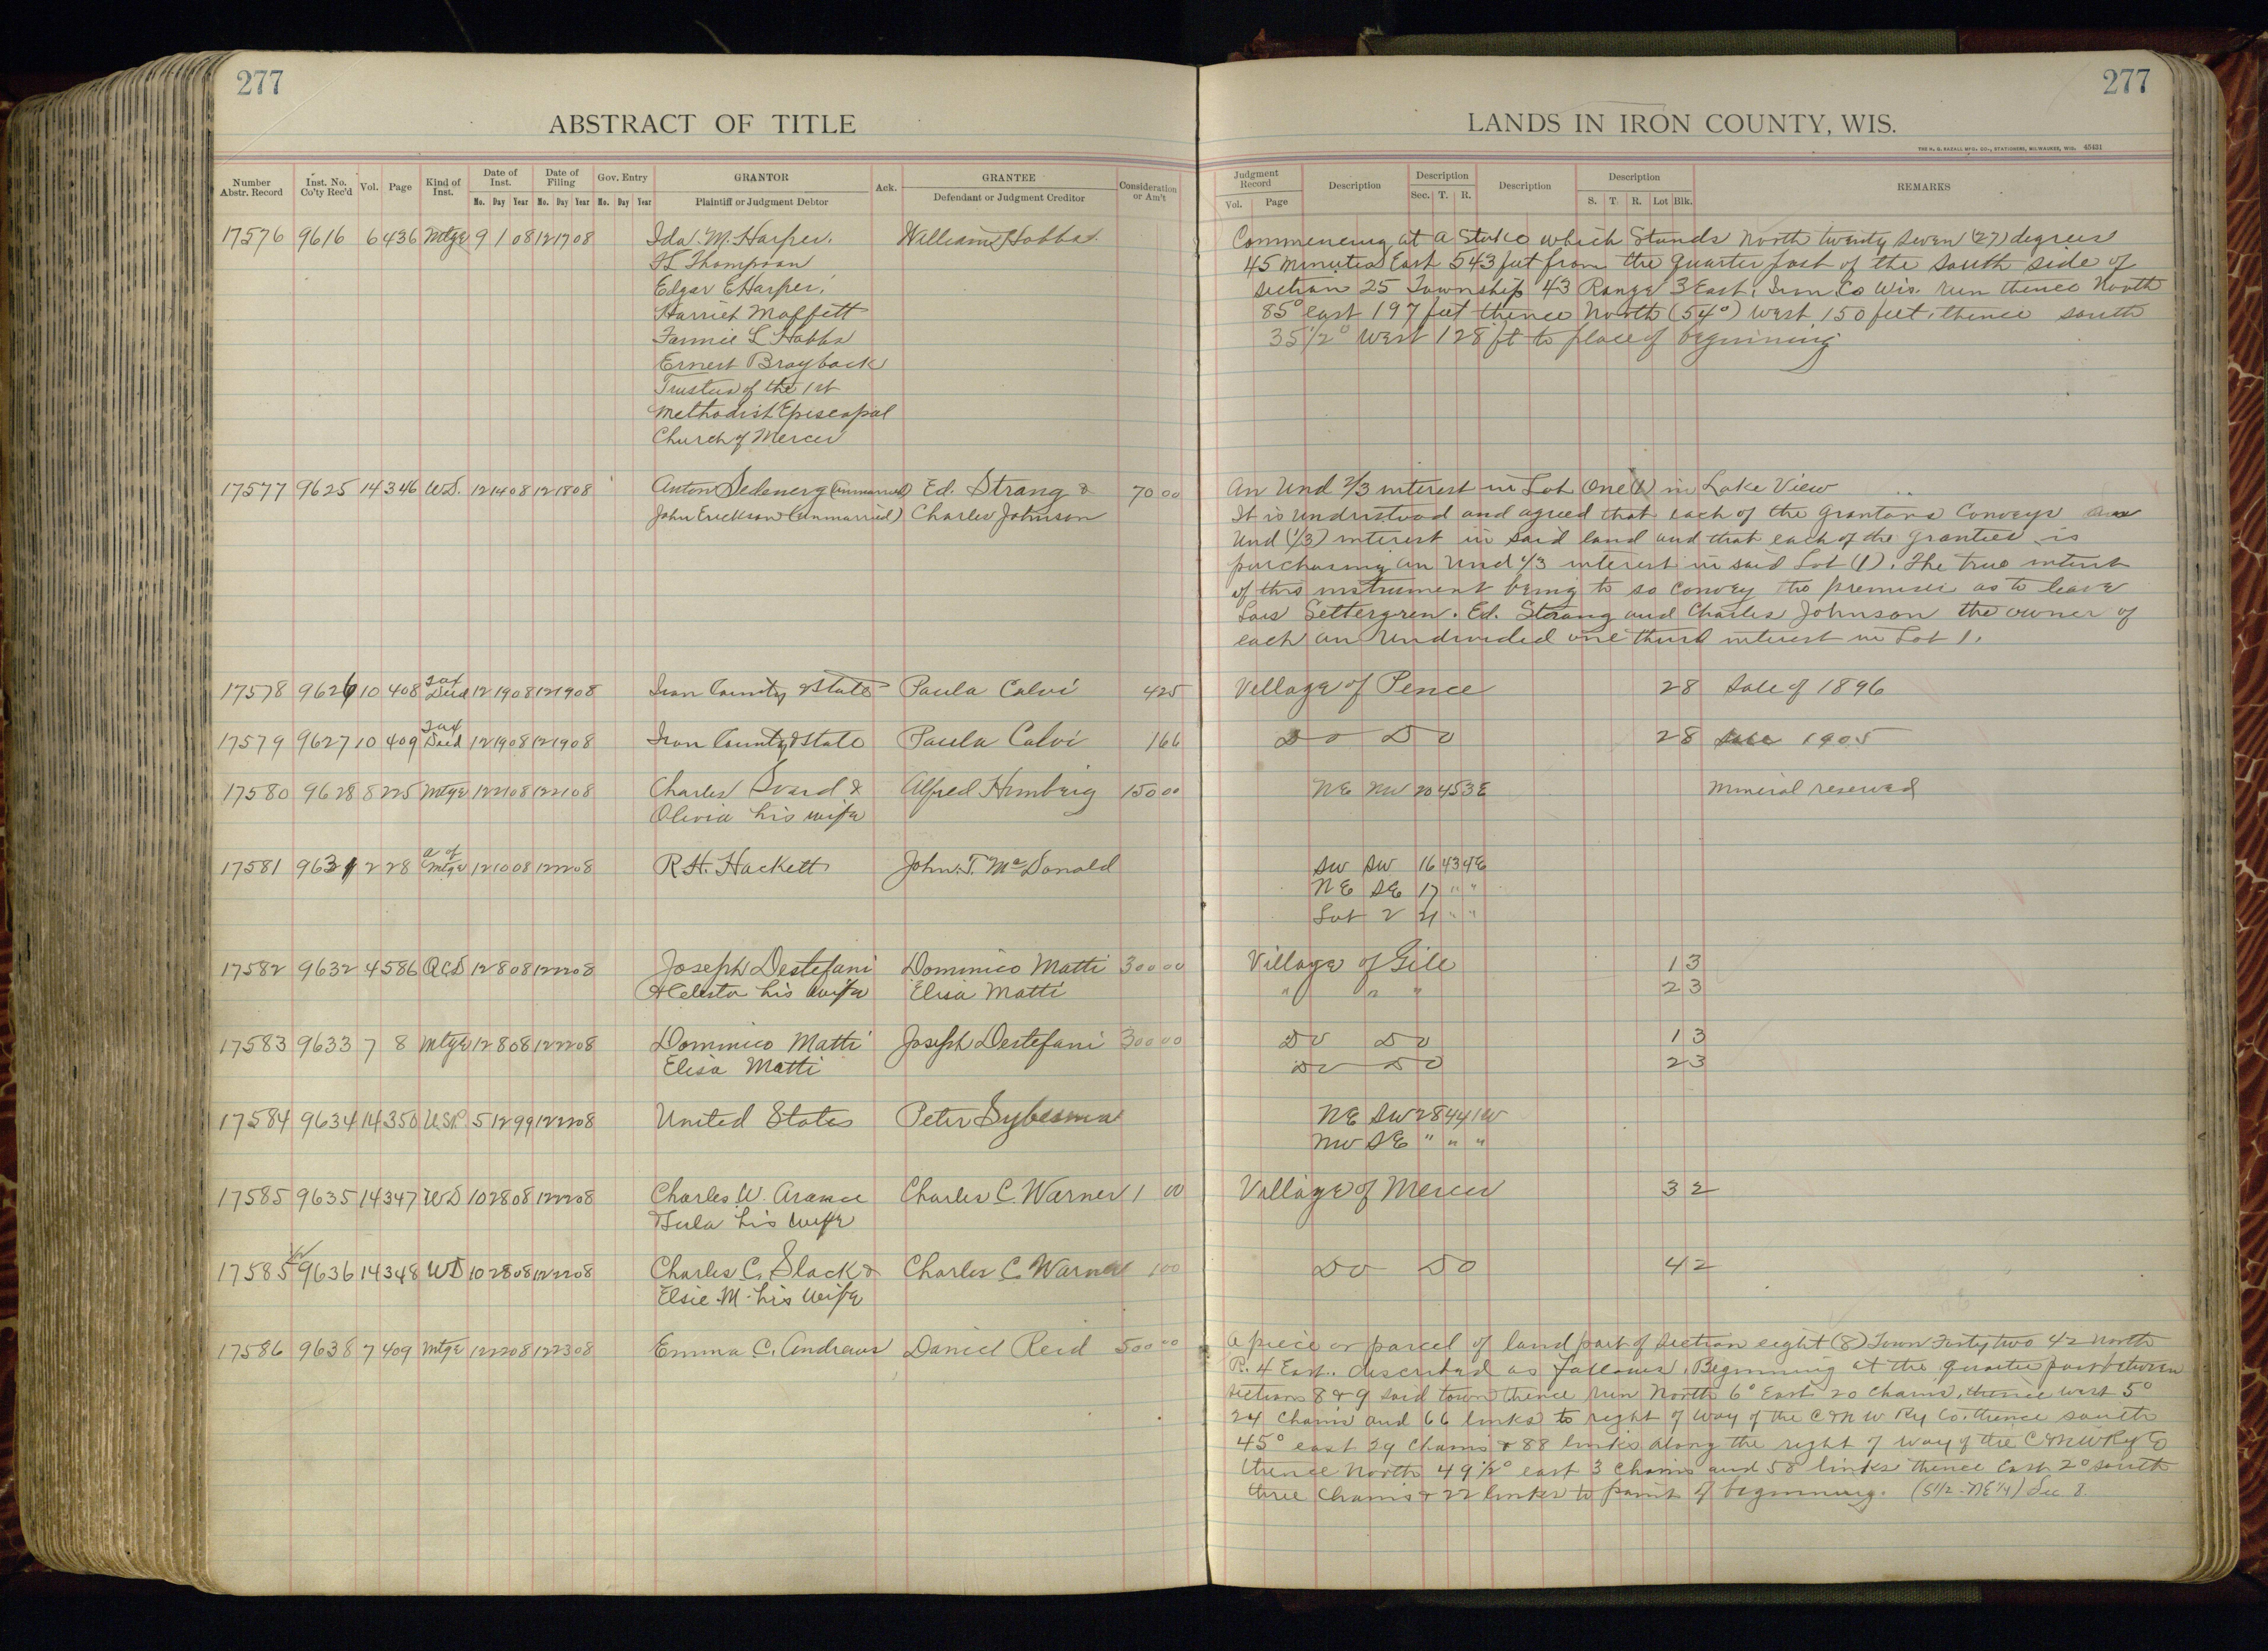 277
277
ABSTRACT OF TITLE
LANDS IN IRON COUNTY, WIS.
THE H. G. RAZALL MFG. CO., STATIONERS, MILWAUKEE, WIS. 45431
Number Abstr. Record Inst. No. Co'ty Rec'd Vol. Page Kind of Inst. Date of Inst. Date of Filing Gov. Entry GRANTOR Ack. GRANTEE Consideration or Am't
Mo. Day Year Mo. Day Year Mo. Day Year Plaintiff or Judgment Debtor Defendant or Judgment Creditor
Judgment Record Description Description Description Description REMARKS
Vol. Page Sec. T. R. S. T. R. Lot Blk.
17576 9616 6 436 Mtge 9 1 08 12 17 08 Ida M. Harper. William Hobbs Commencing at a Stake which Stands North twenty seven (27) degrees
Thompson 45 minutes East 543 feet from the quarter post of the south side of
Edgar E Harper, section 25 Township 43 Range 3 East, Iron Co Wis. run thence North
Harriet Moffett 85° east 197 feet thence North (54°) west 150 feet, thence south
Fannie L Hobbs 35 1/2° west 128 ft to place of beginning
Ernest Brayback
Trustees of the 1st
Methodist Episcopal
Church of Mercer
17577 9625 14 346 W.D. 12 14 08 12 18 08 Anton (unmarried) Ed. Strang & 70 00 An Und 2/3 interest in Lot One (1) in Lake View
John Erickson (unmarried) Charles Johnson It is understood and agreed that each of the grantors Conveys an
Und (1/3) interest in said land and that each of the grantees is
purchasing an Und 1/3 interest in said Lot (1). The true intent
of this instrument being to so convey the premises as to leave
Settergren. Ed. Strang and Charles Johnson the owner of
each an undivided one third interest in Lot 1.
17578 9626 10 408 Tax Deed 12 19 08 12 19 08 Iron County & State Paula Calvi 4 25 Village of Pence 28 Sale of 1896
17579 9627 10 409 Tax Deed 12 19 08 12 19 08 Iron County & State Paula Calvi 1 66 Do Do 28 Sale 1905
17580 9628 8 225 Mtge 12 21 08 12 21 08 Charles Svard & Alfred Himberg 150 00 NE NW 20 45 3E Mineral reserved
Olivia his wife
17581 9631 2 28 A of Mtge 12 10 08 12 22 08 R. H. Hackett John T. McDonald SW SW 16 43 4E
NE SE 17 " "
Lot 2 21 " "
17582 9632 4 586 QCD 12 8 08 12 22 08 Joseph Destefani Dominico Matti 300 00 Village of Gile 1 3
& Celesta his wife Elisa Matti " " " 2 3
17583 9633 7 8 Mtge 12 8 08 12 22 08 Dominico Matti Joseph Destefani 300 00 Do Do 1 3
Elisa Matti Do Do 2 3
17584 9634 14 350 U.S.P. 5 12 99 12 22 08 United States Peter Sybesma NE SW 28 44 1W
NW SE " " "
17585 9635 14 347 WD 10 28 08 12 22 08 Charles W. Charles C. Warner 1 00 Village of Mercer 3 2
& his wife
17585 1/2 9636 14 348 WD 10 28 08 12 22 08 Charles C. Slack & Charles C. Warner 1 00 Do Do 4 2
Elsie M. his wife
17586 9638 7 409 Mtge 12 22 08 12 23 08 Emma C. Andrews Daniel Reid 500 00 A piece or parcel of land part of Section eight (8) Town Forty two 42 North
R. 4 East. described as follows. Beginning at the quarter post between
sections 8 & 9 said town thence run North 6° East 20 chains, thence west 5°
24 chains and 66 links to right of way of the C & N W Ry Co. thence south
45° east 29 chains & 88 links along the right of way of the C & N W Ry Co
thence North 49 1/2° east 3 chains and 58 links thence East 2° south
three chains & 22 links to point of beginning. (S 1/2 - NE 1/4) Sec 8.